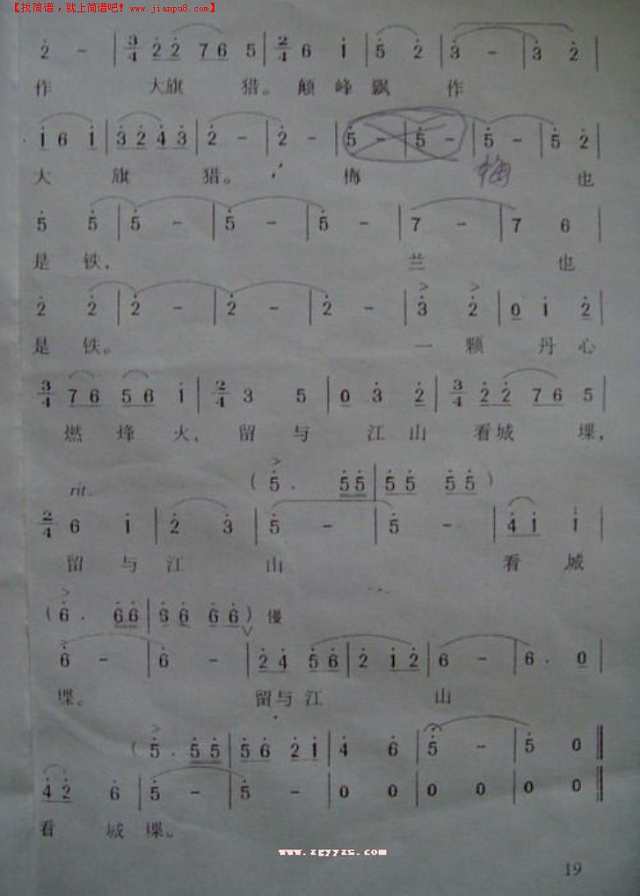 【找简谱，就上简谱吧！】
【 www.jianpu8.com 】
2 - | 3/4 2 2 7 6 5 | 2/4 6 i | 5 2 | 3 - | 3 2 |
作 大旗 猎。 颠 峰 飘 作
i 6 i | 3 2 4 3 | 2 - | 2 - | 5 - | 5 - | 5 - | 5 2 |
大 旗 猎。 梅 梅 也
5 5 | 5 - | 5 - | 5 - | 7 - | 7 6 |
是 铁， 兰 也
2 2 | 2 - | 2 - | 2 - | 3 2 | 0 i 2 |
是 铁。 一 颗 丹 心
3/4 7 6 5 6 i | 2/4 3 5 | 0 3 2 | 3/4 2 2 7 6 5 |
燃 烽 火， 留 与 江 山 看 城 堞，
rit. ( 5 . 5 5 | 5 5 5 5 )
2/4 6 i | 2 3 | 5 - | 5 - | 4 i i |
留 与 江 山 看 城
( 6 . 6 6 | 6 6 6 6 ) 慢
6 - | 6 - | 2 4 5 6 | 2 1 2 | 6 - | 6 . 0 |
堞。 留与 江 山
( 5 . 5 5 | 5 6 2 i | 4 6 | 5 - | 5 0 ‖
4 2 6 | 5 - | 5 - | 0 0 | 0 0 | 0 0 ‖
看 城 堞。
www.zgyyzs.com
19